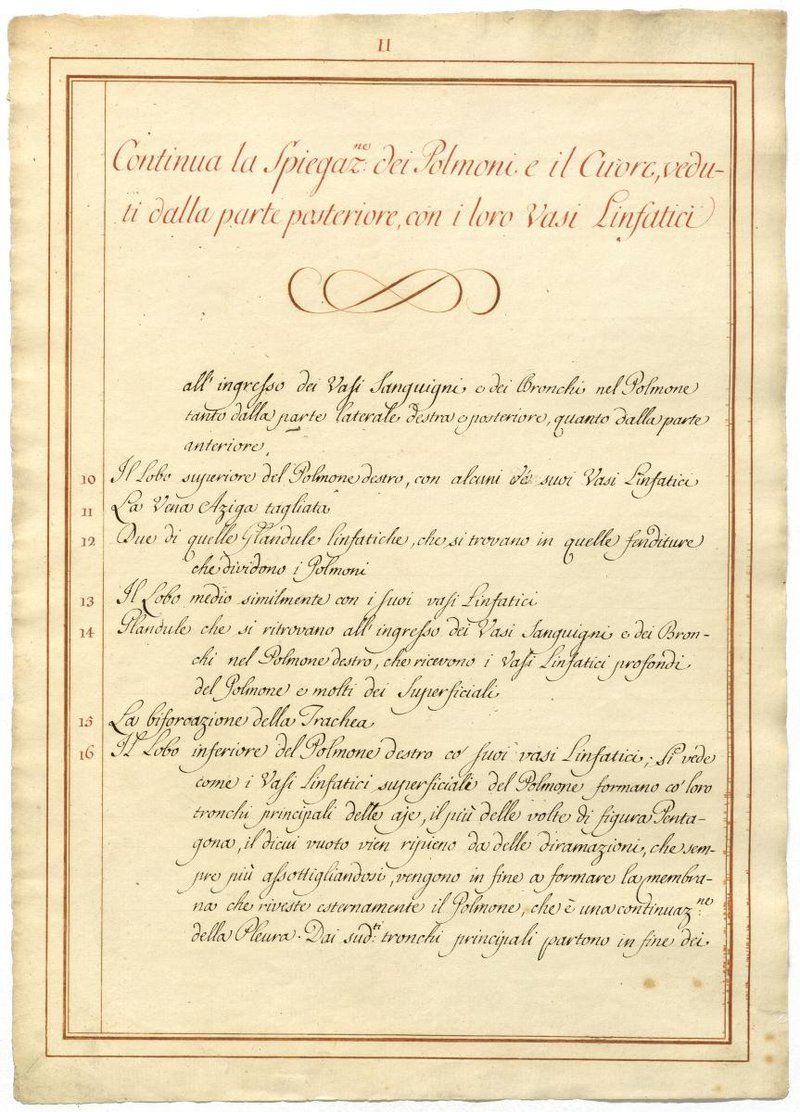 II
Continua la Spiegaz.ne dei Polmoni e il Cuore, vedu-
ti dalla parte posteriore, con i loro Vasi Linfatici
all' ingresso dei Vasi Sanguigni e dei Bronchi nel Polmone
tanto dalla parte laterale destra e posteriore, quanto dalla parte
anteriore.
10 Il Lobo superiore del Polmone destro, con alcuni de' suoi Vasi Linfatici
11 La Vena Aziga tagliata
12 Due di quelle Glandule linfatiche, che si trovano in quelle fenditure
che dividono i Polmoni
13 Il Lobo medio similmente con i suoi vasi Linfatici
14 Glandule che si ritrovano all' ingresso dei Vasi Sanguigni e dei Bron-
chi nel Polmone destro, che ricevono i Vasi Linfatici profondi
del Polmone e molti dei Superficiali
15 La biforcazione della Trachea
16 Il Lobo inferiore del Polmone destro co' suoi vasi Linfatici; Si vede
come i Vasi Linfatici superficiali del Polmone formano co' loro
tronchi principali delle aje, il più delle volte di figura Penta-
gona, il dicui vuoto vien ripieno da delle diramazioni, che sem-
pre più assottigliandosi, vengono in fine a formare la membra-
na che riveste esternamente il Polmone, che è una continuaz.ne
della Pleura. Dai sud.ti tronchi principali partono in fine dei